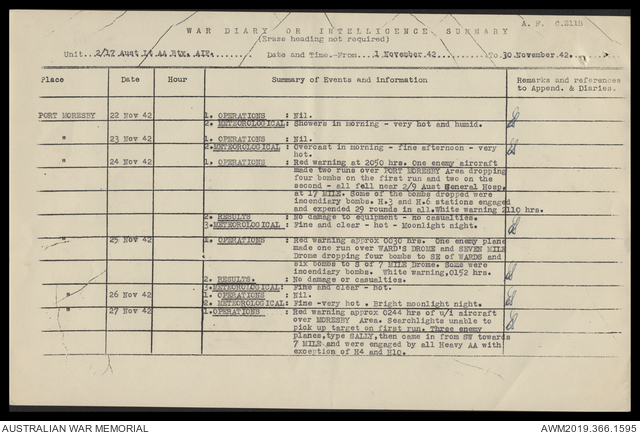 A. F. C.2118
WAR DIARY OR INTELLIGENCE SUMMARY
(Erase heading not required)
Unit. 2/17 Aust Lt AA Bty. AIF. Date and Time.-From. 1 November 42. To 30 November 42.
Place Date Hour Summary of Events and information Remarks and references to Append. & Diaries.
PORT MORESBY 22 Nov 42 1. OPERATIONS : Nil.
2. METEOROLOGICAL: Showers in morning - very hot and humid.
" 23 Nov 42 1. OPERATIONS : Nil.
2.METEOROLOGICAL: Overcast in morning - fine afternoon - very
hot.
" 24 Nov 42 1. OPERATIONS : Red warning at 2050 hrs. One enemy aircraft
made two runs over PORT MORESBY Area dropping
four bombs on the first run and two on the
second - all fell near 2/9 Aust General Hosp.
at 17 MILE. Some of the bombs dropped were
incendiary bombs. H.3 and H.6 stations engaged
and expended 29 rounds in all. White warning 2110 hrs.
2. RESULTS : No damage to equipment - no casualties.
3.METEOROLOGICAL : Fine and clear - hot - Moonlight night.
" 25 Nov 42 1. OPERATIONS : Red warning approx 0030 hrs. One enemy plane
made one run over WARD'S DROME and SEVEN MILE
Drome dropping four bombs to SE of WARDS and
six bombs to S of 7 MILE Drome. Some were
incendiary bombs. White warning,0152 hrs.
2. RESULTS. : No damage or casualties.
3.METEOROLOGICAL: Fine and clear - hot.
" 26 Nov 42 1. OPERATIONS : Nil.
2. METEOROLOGICAL: Fine -very hot . Bright moonlight night.
" 27 Nov 42 1.OPERATIONS : Red warning approx 0244 hrs of u/i aircraft
over MORESBY Area. Searchlights unable to
pick up target on first run. Three enemy
planes,type SALLY,then came in from SW towards
7 MILE and were engaged by all Heavy AA with
exception of H4 and H10.
AUSTRALIAN WAR MEMORIAL AWM2019.366.1595